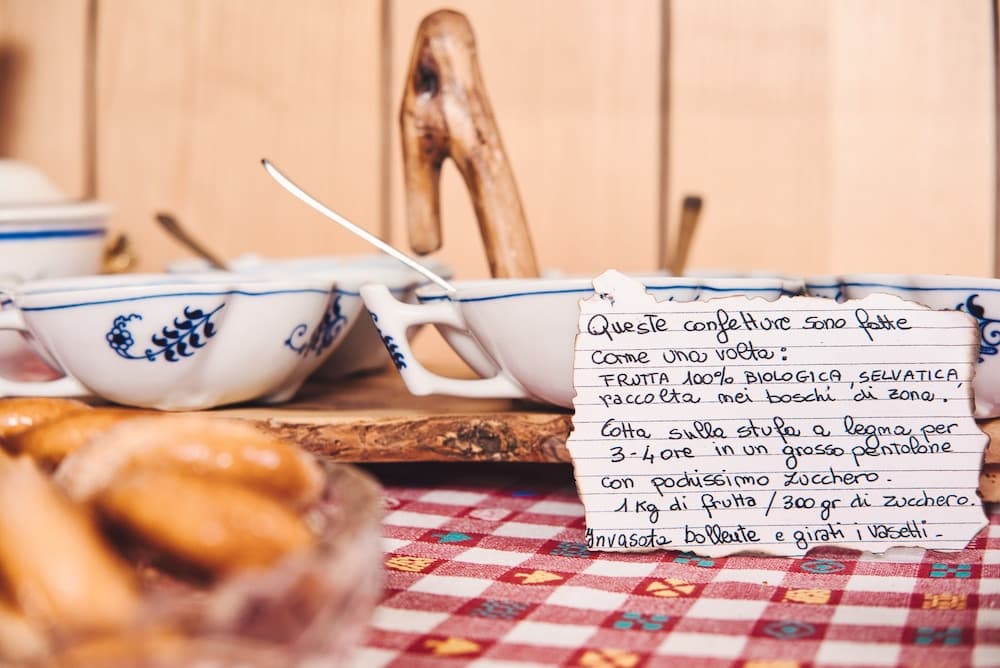 Queste confetture sono fatte
come una volta:
FRUTTA 100% BIOLOGICA, SELVATICA,
raccolta nei boschi di zona.
Cotta sulla stufa a legna per
3-4 ore in un grosso pentolone
con pochissimo zucchero.
1 Kg di frutta / 300 gr di zucchero
Invasata bollente e girati i vasetti.-